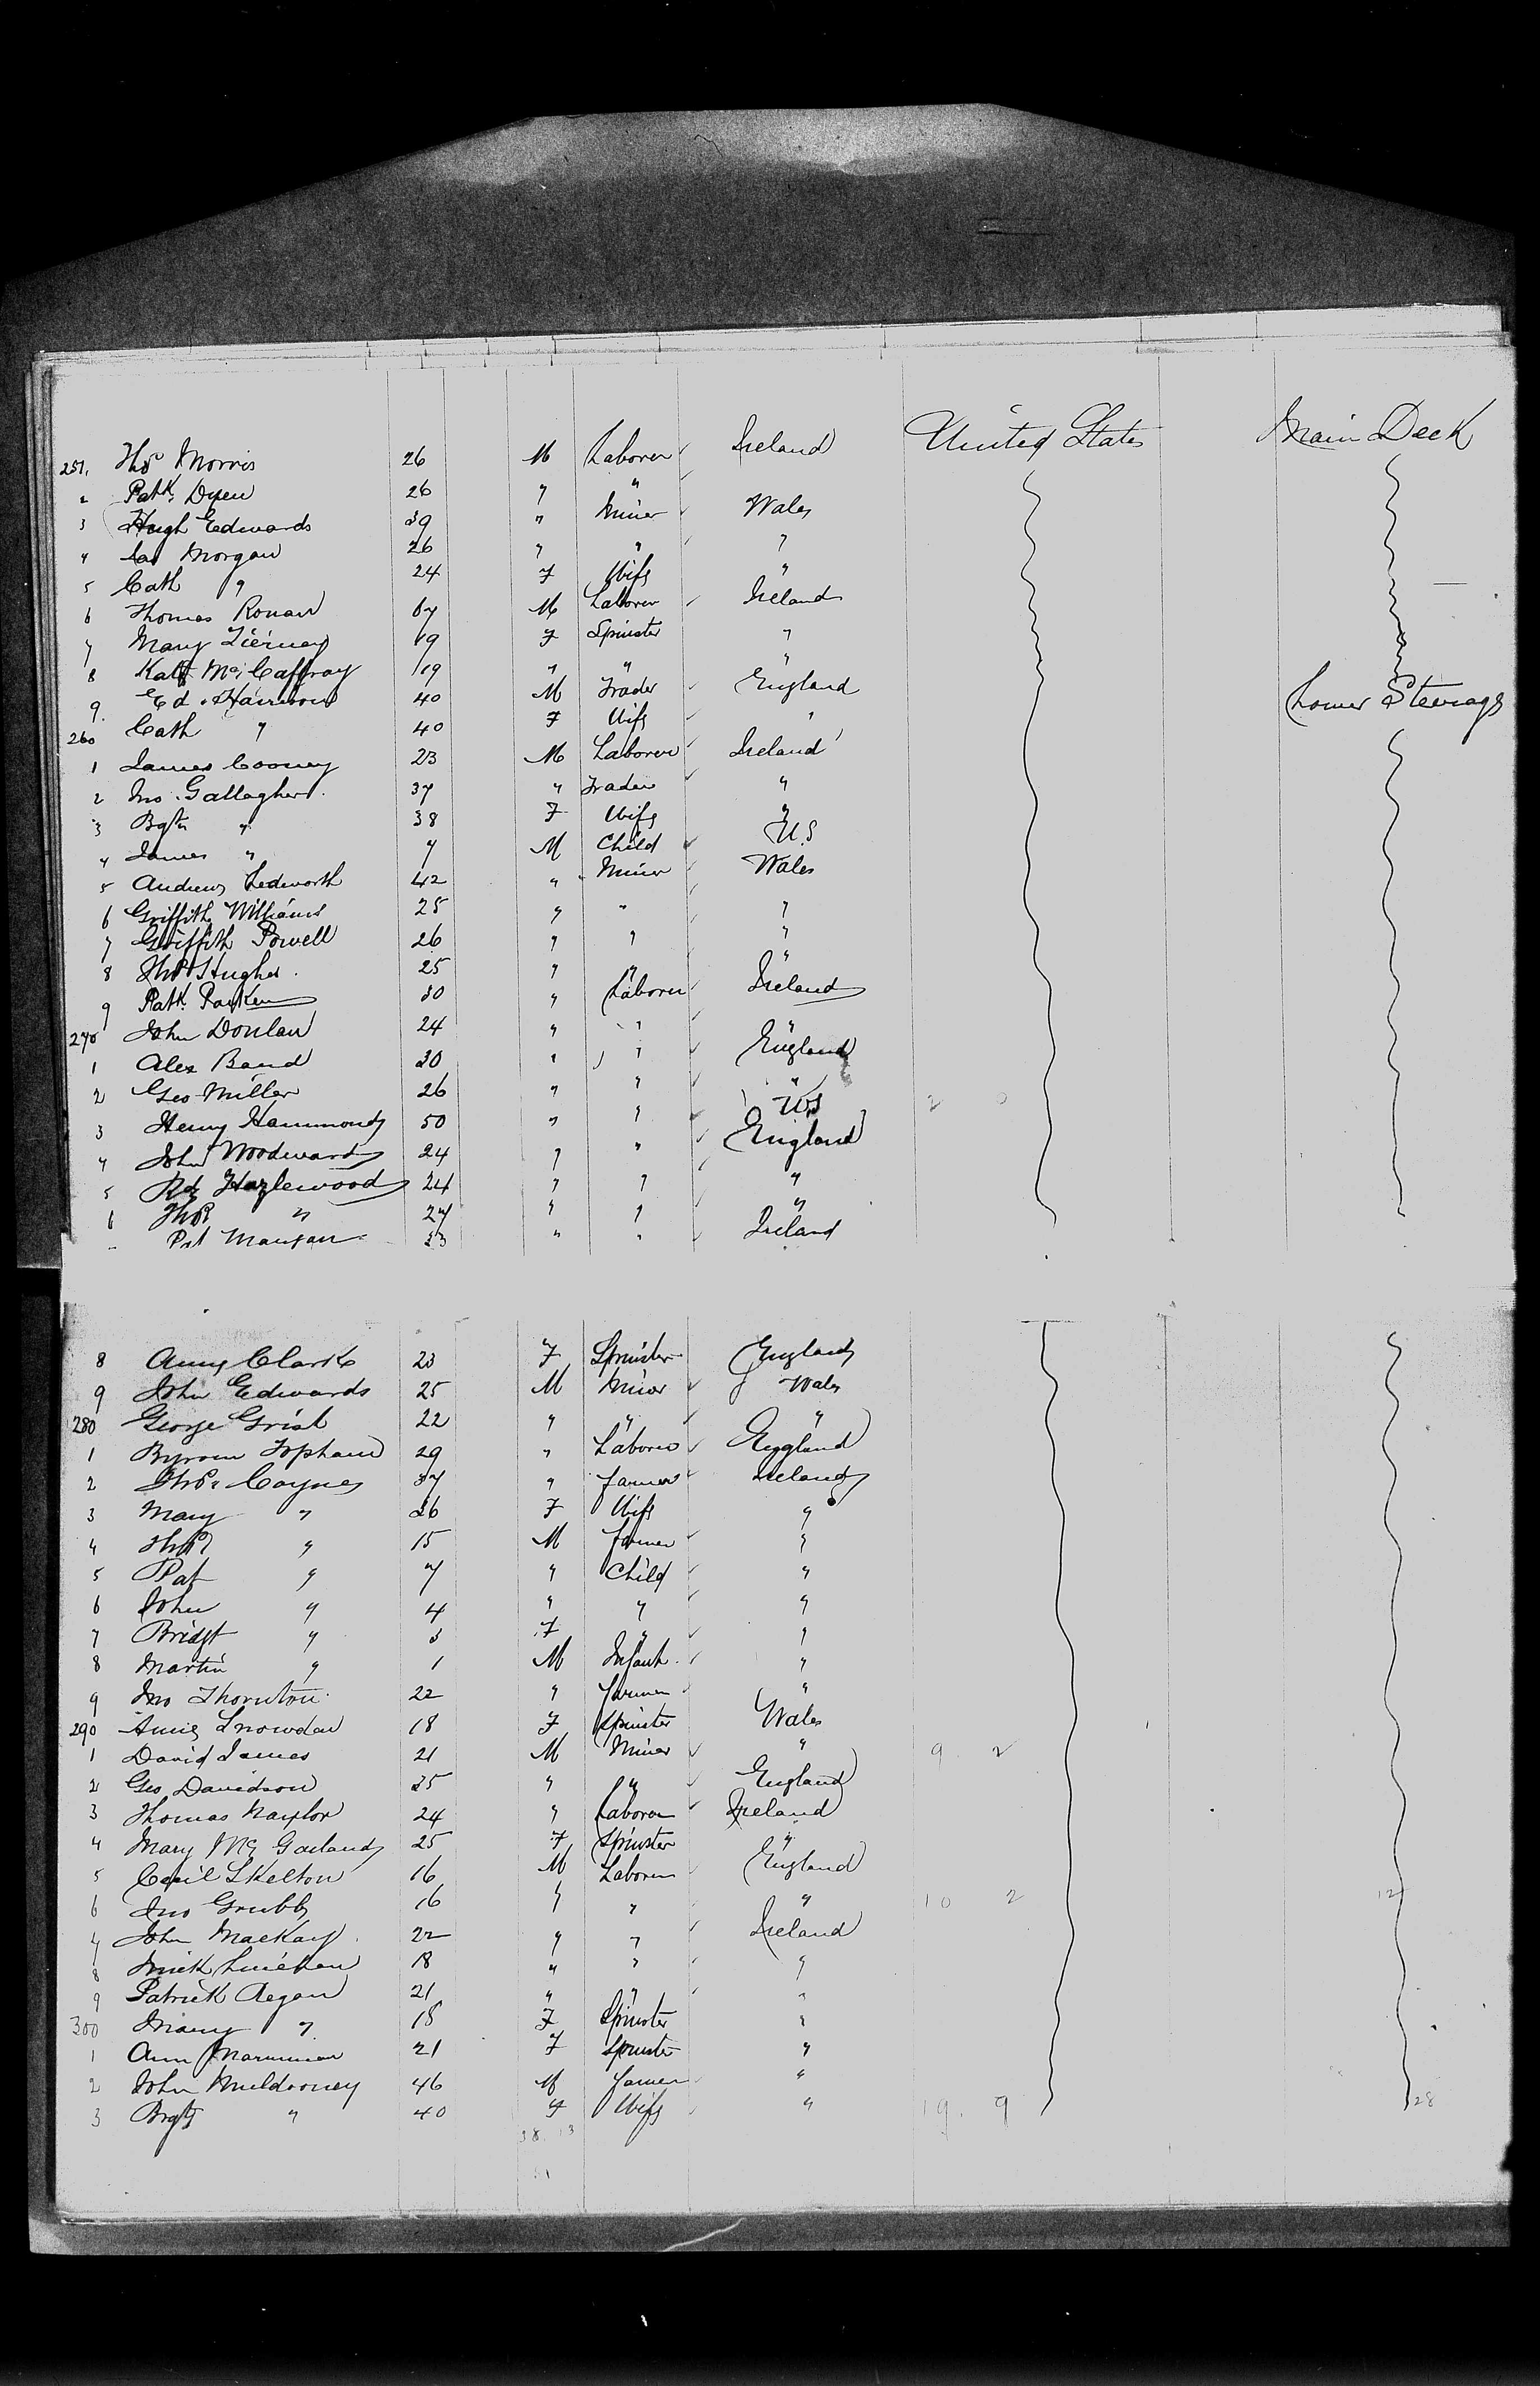 251. Thos Morris 26 M Laborer Ireland United States Main Deck
2 Patk. Dyen 26 " "
3 Hugh Edwards 39 " Miner Wales
4 Morgan 26 " " "
5 Cath " 24 F Wife "
6 Thomas Ronan 67 M Laborer Ireland
7 Mary Tierney 19 F Spinster "
8 Kate McCaffray 19 " " "
9. Ed. Harrison 40 M Trader England Lower Steerage
260 Cath " 40 F Wife "
1 James Cooney 23 M Laborer Ireland
2 Jno. Gallagher. 37 " Trader "
3 Bgt " 38 F Wife "
4 James " 7 M Child U.S
5 Andrew Ledworth 42 " Miner Wales
6 Griffith Williams 25 " " "
7 Griffith Powell 26 " " "
8 Thos Hughes. 25 " " "
9 Patk. 30 " Laborer Ireland
270 John Donlan 24 " " "
1 Alex Band 30 " " England
2 Geo Miller 26 " " "
3 Henry Hammond 50 " " US 2 0
4 John Woodward 24 " " England
5 Rd Hazlewood 24 " " "
6 Thos " 27 " " "
Pat Mangan 23 " " Ireland
8 Amy Clark 23 F Spinster England
9 John Edwards 25 M Miner Wales
280 George Grist 22 " " "
1 Byrom Topham 29 " Laborer England
2 Thos. Coyne 37 " farmer Ireland
3 Mary " 36 F Wife "
4 Thos " 15 M farmer "
5 Pat " 7 " Child "
6 John " 4 " " "
7 Bridgt " 3 F " "
8 Martin " 1 M Infant "
9 Jno Thornton 22 " farmer "
290 Annie Snowdon 18 F Spinster Wales
1 David James 21 M Miner " 9 2
2 Geo Davidson 25 " " England
3 Thomas Naylor 24 " Laborer Ireland
4 Mary Mc Garland 25 F Spinster "
5 Cecil Skelton 16 M Laborer England
6 Jno Grubb 16 " " " 10 2 12
7 John Mackay 22 " " Ireland
8 Mick 18 " " "
9 Patrick Regan 21 " " "
300 Mary " 18 F Spinster "
1 Ann 21 F Spinster "
2 John Muldooney 46 M farmer "
3 Brgt " 40 F Wife " 19. 9 28
38 13
51